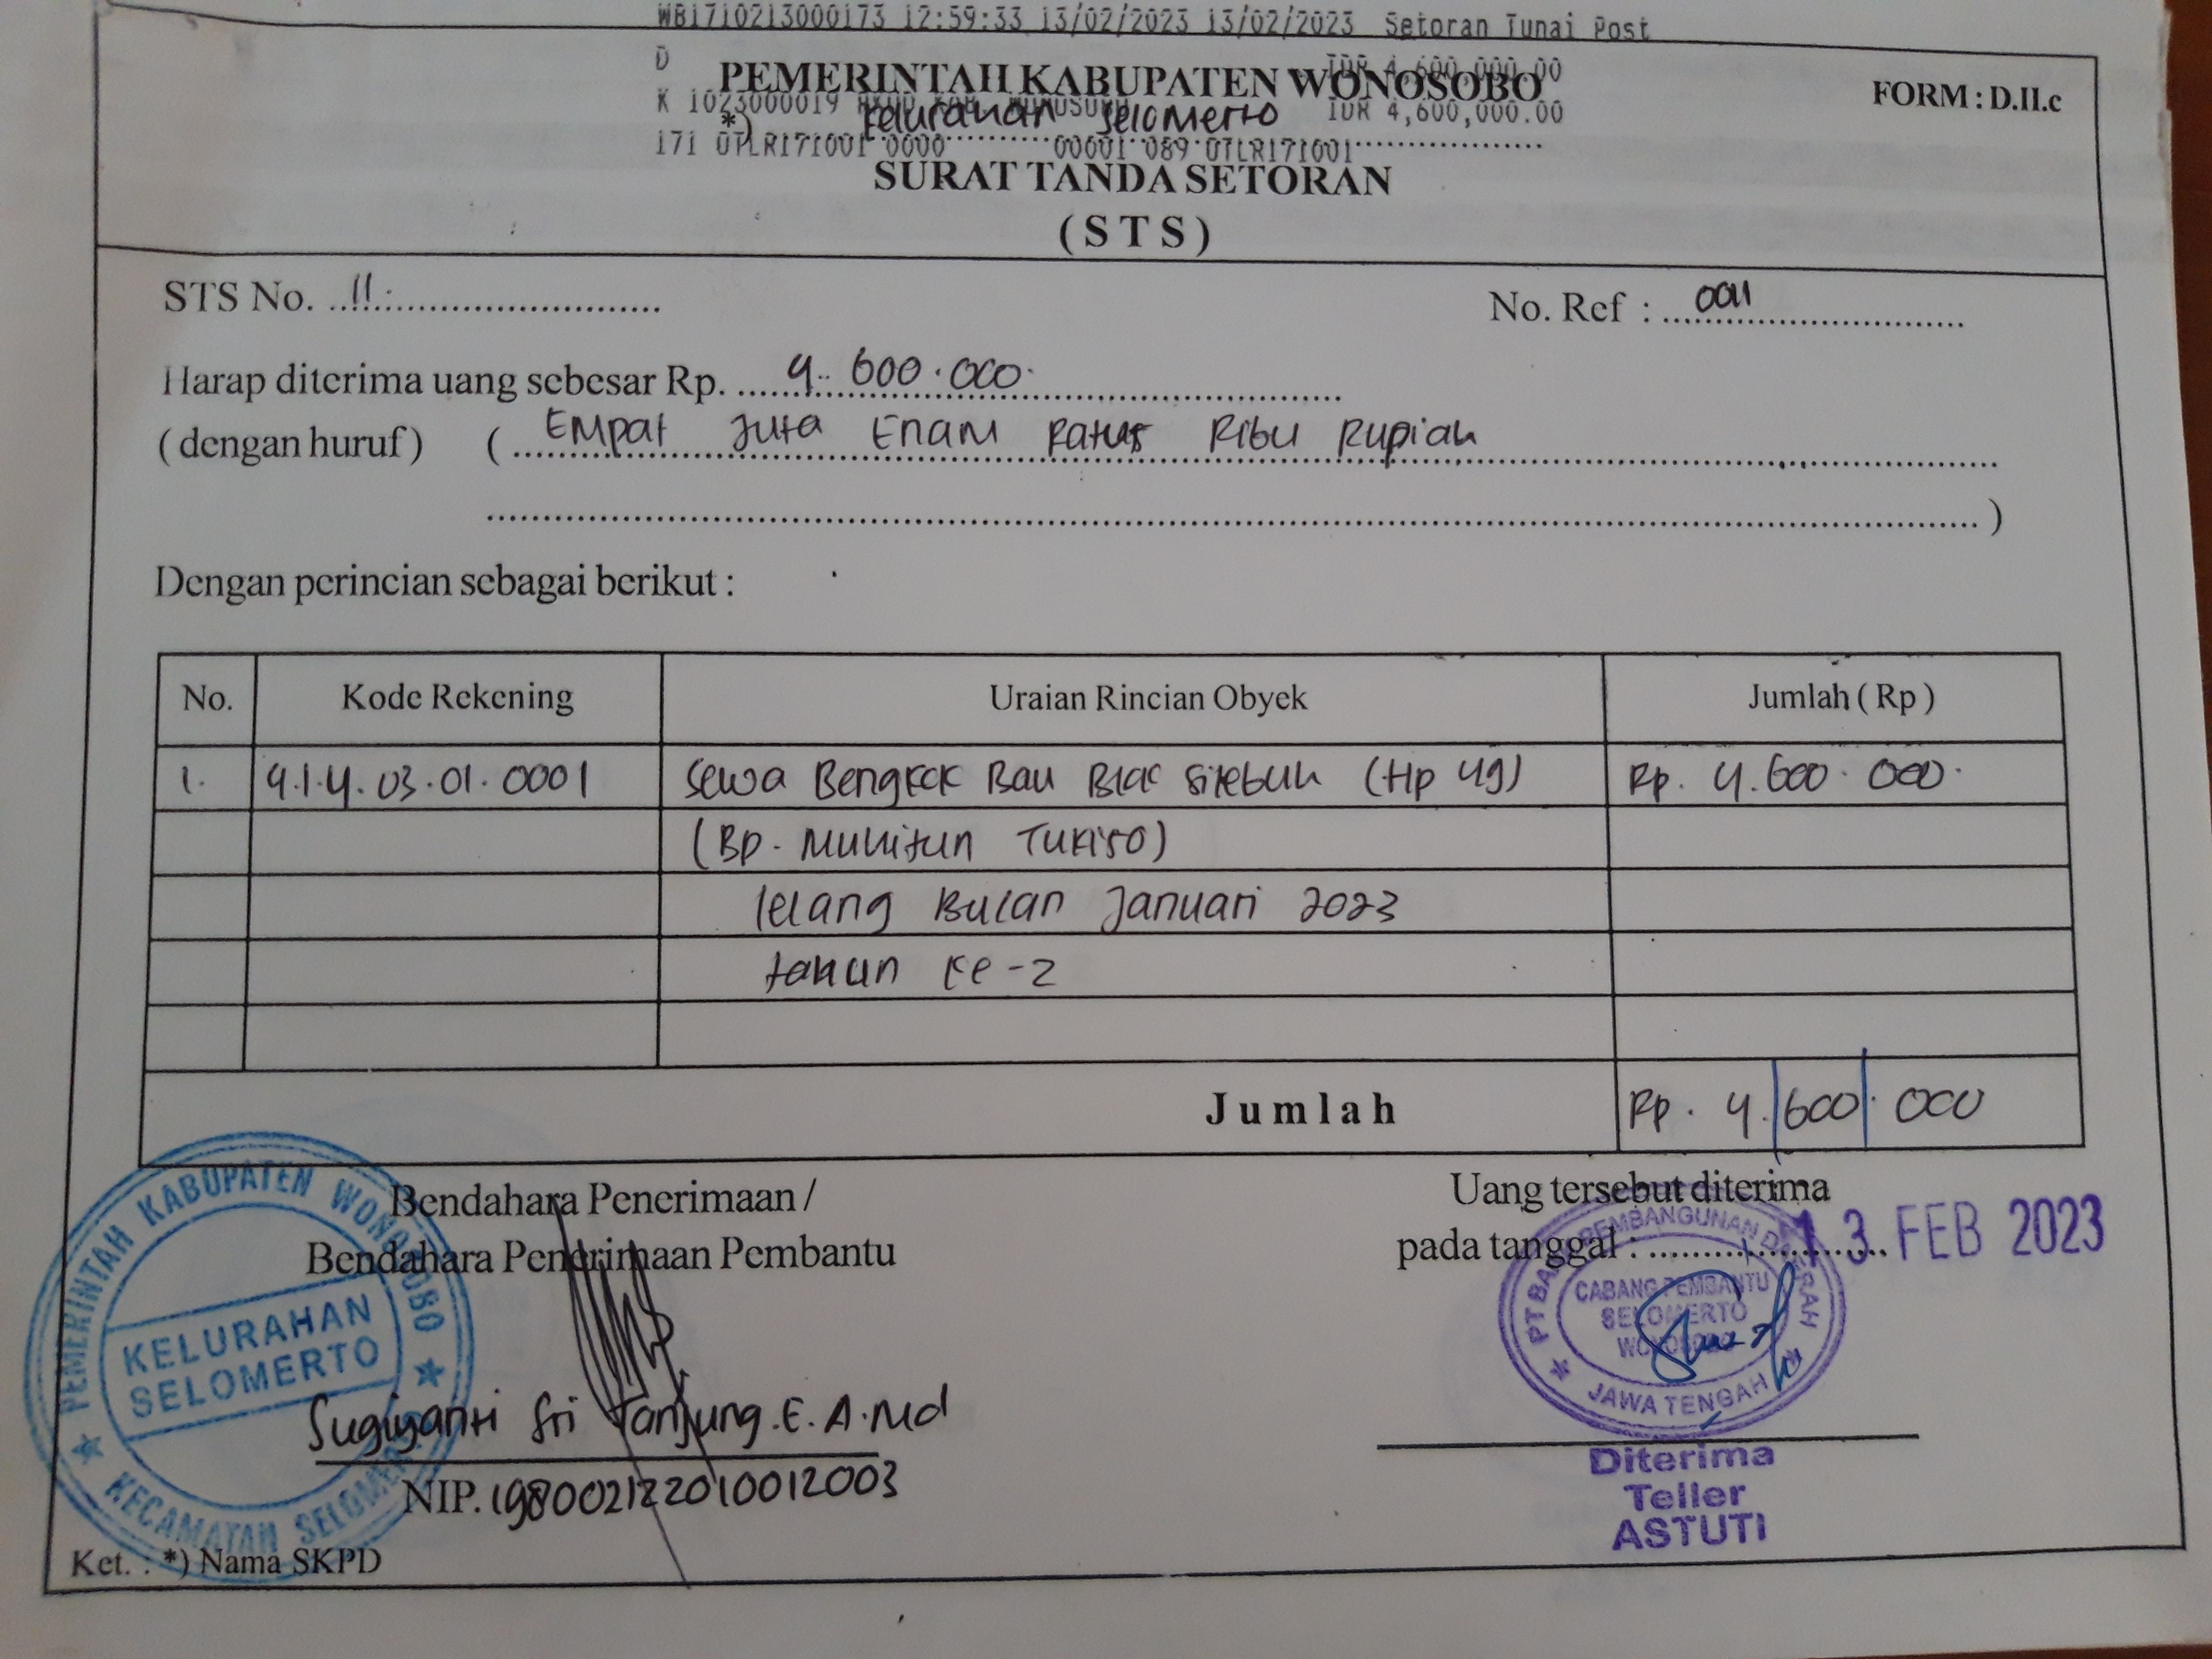 WB1710213000173 12:59:33 13/02/2023 13/02/2023 Setoran Tunai Post
D IDR 4,600,000.00
PEMERINTAH KABUPATEN WONOSOBO
FORM : D.II.c
K 1023000019 RKUD KAB. WONOSOBO IDR 4,600,000.00
*) Kelurahan Selomerto
171 0TLR171001 0000 00001 089 0TLR171001
SURAT TANDA SETORAN
( S T S )
STS No. 11.
No. Ref : 0011
Harap diterima uang sebesar Rp. 4. 600.000.
( dengan huruf ) ( Empat Juta Enam Ratus Ribu Rupiah
)
Dengan perincian sebagai berikut :
No. Kode Rekening Uraian Rincian Obyek Jumlah ( Rp )
1. 4.1.4.03.01.0001 Sewa Bengkok Bau Blok Sitebuh (Hp 49) Rp. 4.600.000.
(Bp. Muhitun Tukiso)
lelang Bulan Januari 2023
tahun ke-2
Jumlah Rp. 4.600.000
Bendahara Penerimaan /
Bendahara Penerimaan Pembantu
Uang tersebut diterima
pada tanggal : 13 FEB 2023
PEMERINTAH KABUPATEN WONOSOBO
KELURAHAN
SELOMERTO
KECAMATAN SELOMERTO
PT BANK PEMBANGUNAN DAERAH
CABANG PEMBANTU
SELOMERTO
WONOSOBO
JAWA TENGAH
Sugiyanti Sri Tanjung.E. A.Md
NIP. 198002122010012003
Diterima
Teller
ASTUTI
Ket. : *) Nama SKPD